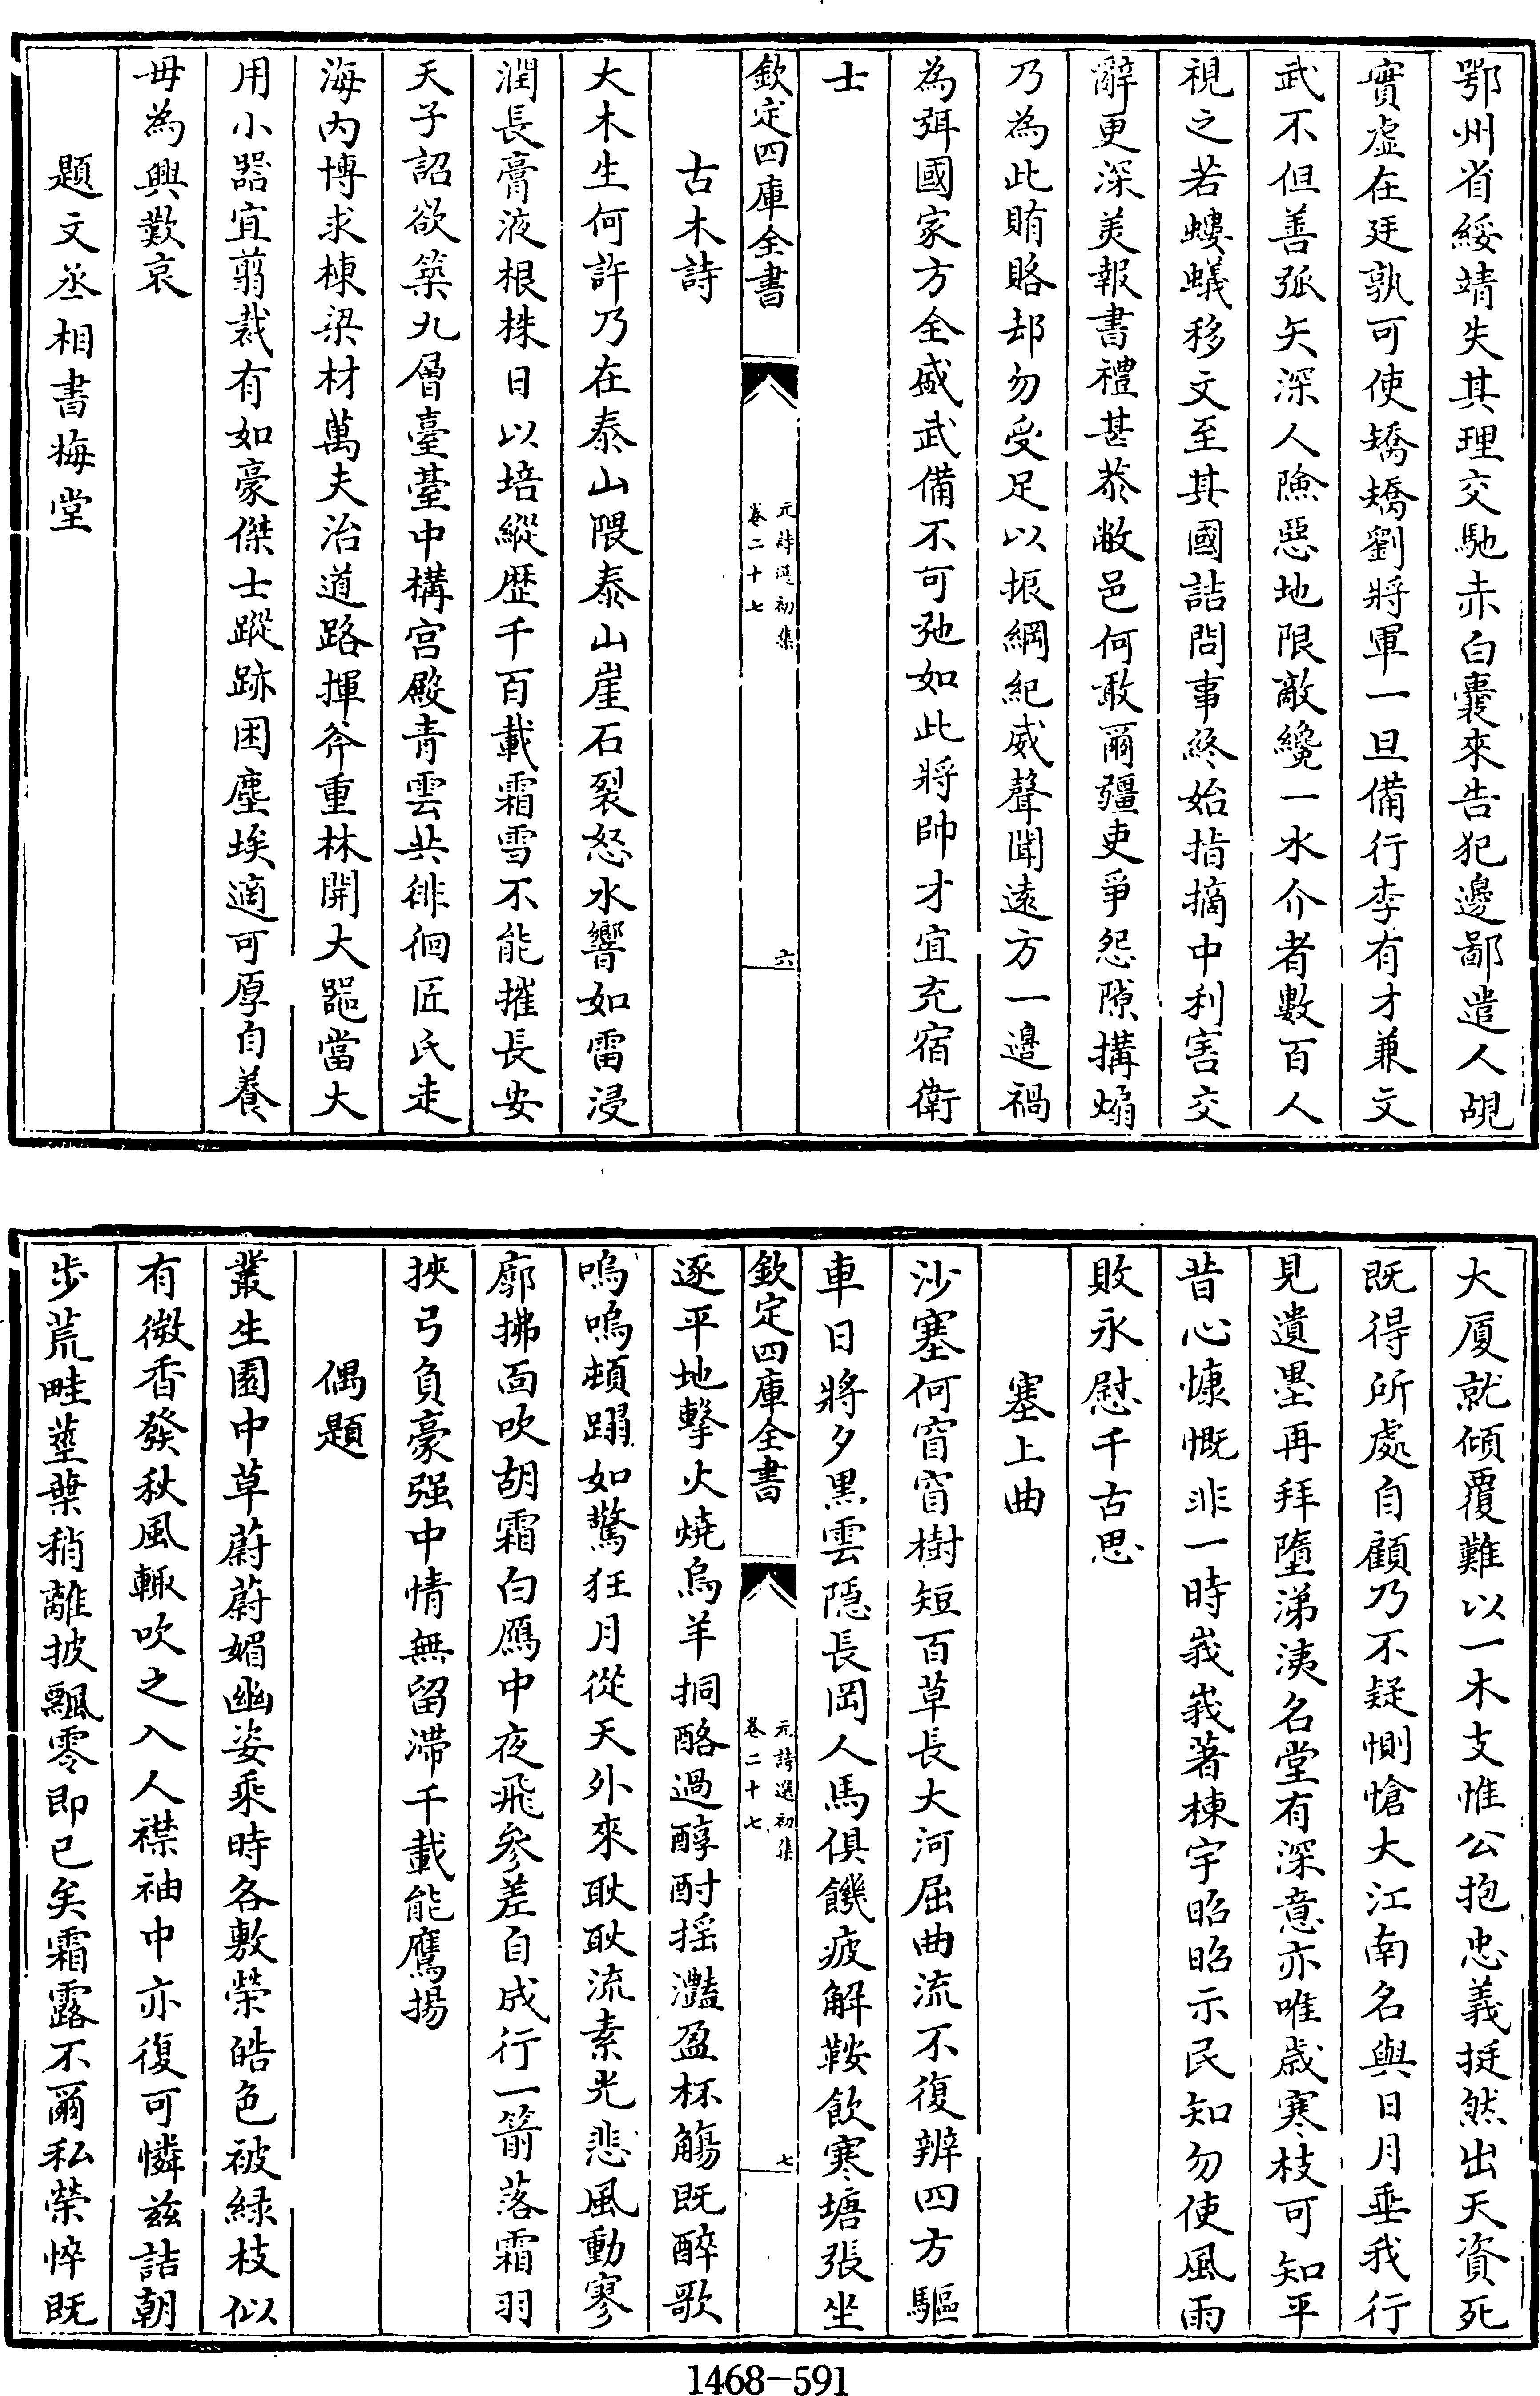 鄂州省綏靖失其理交馳赤白囊來告犯邊鄙遣人覘
實虛在廷孰可使矯矯劉將軍一旦備行李有才兼文
武不但善弧矢深人險惡地限敵纔一水介者數百人
視之若螻蟻移文至其國詰問事終始指摘中利害交
辭更深美報書禮甚恭敝邑何敢爾疆吏爭怨隙搆煽
乃為此賄賂却勿受足以振綱紀威聲聞遠方一邉禍
為弭國家方全盛武備不可弛如此將帥才宜充宿衛
士
欽定四庫全書
元詩選初集
卷二十七
六
古木詩
大木生何許乃在泰山隈泰山崖石裂怒水響如雷浸
潤長膏液根株日以培縱歴千百載霜雪不能摧長安
天子詔欲築九層臺臺中構宫殿青雲共徘徊匠氏走
海内博求棟梁材萬夫治道路揮斧重林開大噐當大
用小器宜翦裁有如豪傑士蹤跡困塵埃適可厚自養
毋為興歎哀
題文丞相書梅堂
大厦就傾覆難以一木支惟公抱忠義挺然出天資死
既得所處自顧乃不疑惻愴大江南名與日月垂我行
見遺墨再拜墮涕洟名堂有深意亦唯歲寒枝可知平
昔心慷慨非一時峩峩著棟宇昭昭示民知勿使風雨
敗永慰千古思
塞上曲
沙塞何窅窅樹短百草長大河屈曲流不復辨四方驅
車日將夕黑雲隱長岡人馬俱饑疲解鞍飲寒塘張坐
欽定四庫全書
元詩選初集
卷二十七
七
逐平地擊火燒烏羊挏酪過醇酎摇灩盈杯觴既醉歌
嗚嗚頓蹋如驚狂月從天外來耿耿流素光悲風動寥
廓拂面吹胡霜白鴈中夜飛參差自成行一箭落霜羽
挾弓負豪强中情無留滯千載能鷹揚
偶題
叢生園中草蔚蔚媚幽姿乘時各敷榮皓色被緑枝似
有微香發秋風輙吹之入人襟袖中亦復可憐兹詰朝
步荒畦莖葉稍離披飄零即已矣霜露不爾私榮悴既
1468-591